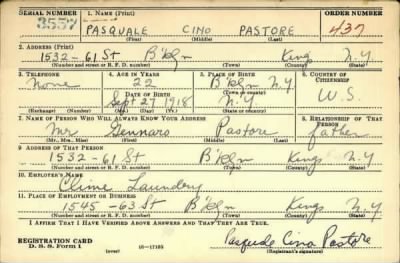 SERIAL NUMBER 1. NAME (Print) ORDER NUMBER
3557 PASQUALE CINO PASTORE 437
(First) (Middle) (Last)
2. ADDRESS (Print)
1532-61 St B'klyn Kings N.Y.
(Number and street or R. F. D. number) (Town) (County) (State)
3. TELEPHONE 4. AGE IN YEARS 5. PLACE OF BIRTH 6. COUNTRY OF CITIZENSHIP
None 22 B'klyn N.Y.
DATE OF BIRTH (Town or county)
Sept 27 1918 N.Y. U.S.
(Exchange) (Number) (Mo.) (Day) (Yr.) (State or country)
7. NAME OF PERSON WHO WILL ALWAYS KNOW YOUR ADDRESS 8. RELATIONSHIP OF THAT PERSON
Mr Gennaro Pastore father
(Mr., Mrs., Miss) (First) (Middle) (Last)
9. ADDRESS OF THAT PERSON
1532-61 St B'klyn Kings N.Y.
(Number and street or R. F. D. number) (Town) (County) (State)
10. EMPLOYER'S NAME
Clime Laundry
11. PLACE OF EMPLOYMENT OR BUSINESS
1545-63 St B'klyn Kings N.Y.
(Number and street or R. F. D. number) (Town) (County) (State)
I AFFIRM THAT I HAVE VERIFIED ABOVE ANSWERS AND THAT THEY ARE TRUE.
REGISTRATION CARD Pasquale Cino Pastore
D. S. S. Form 1 (over) 16-17105 (Registrant's signature)